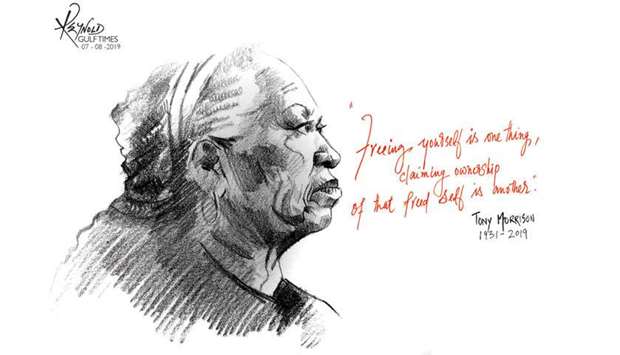 REYNOLD
GULFTIMES
07-08-2019
"Freeing yourself is one thing,
claiming ownership
of that freed self is another".
TONY MORRISON
1931-2019